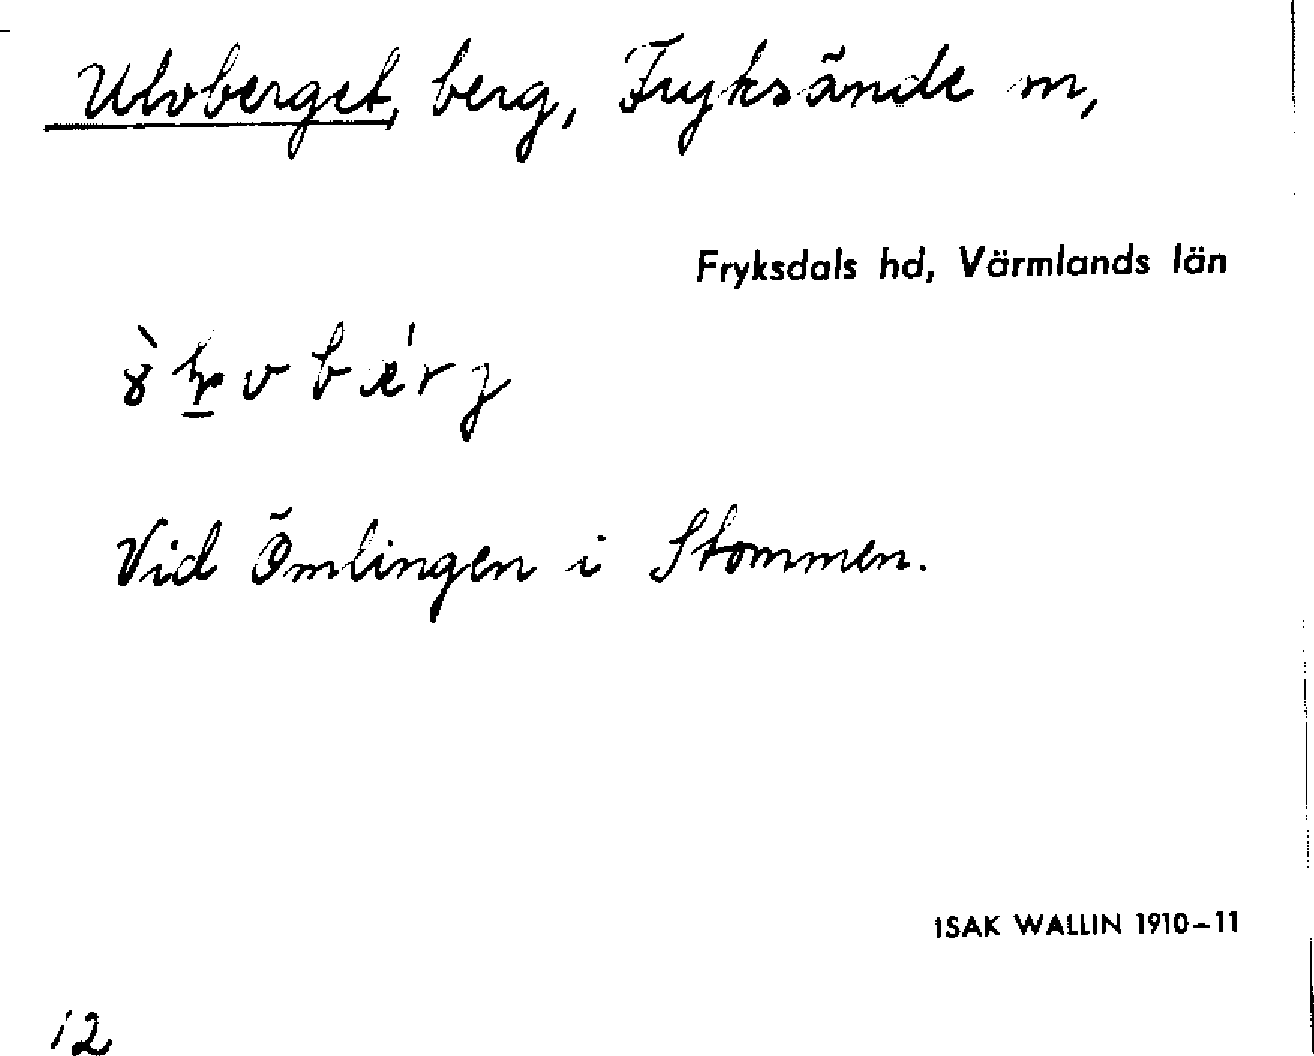 Ulvberget, berg, Fryksände m,
Fryksdals hd, Värmlands län
Vid Ömlingen i Stommen.
ISAK WALLIN 1910–11
12